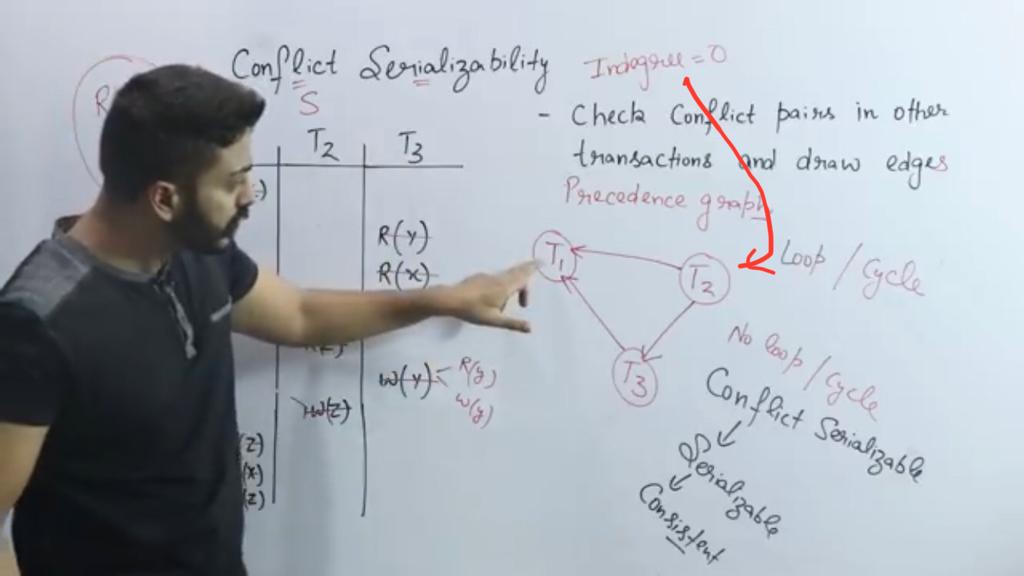 Conflict Serializability
S
Indegree = 0
- Check Conflict pairs in other
transactions and draw edges
Precedence graph
T2 T3
R(y)
R(x)
W(y) R(y)
W(y)
W(z)
(z)
(x)
(z)
T1
T2
T3
Loop / Cycle
No loop / Cycle
Conflict Serializable
Serializable
Consistent